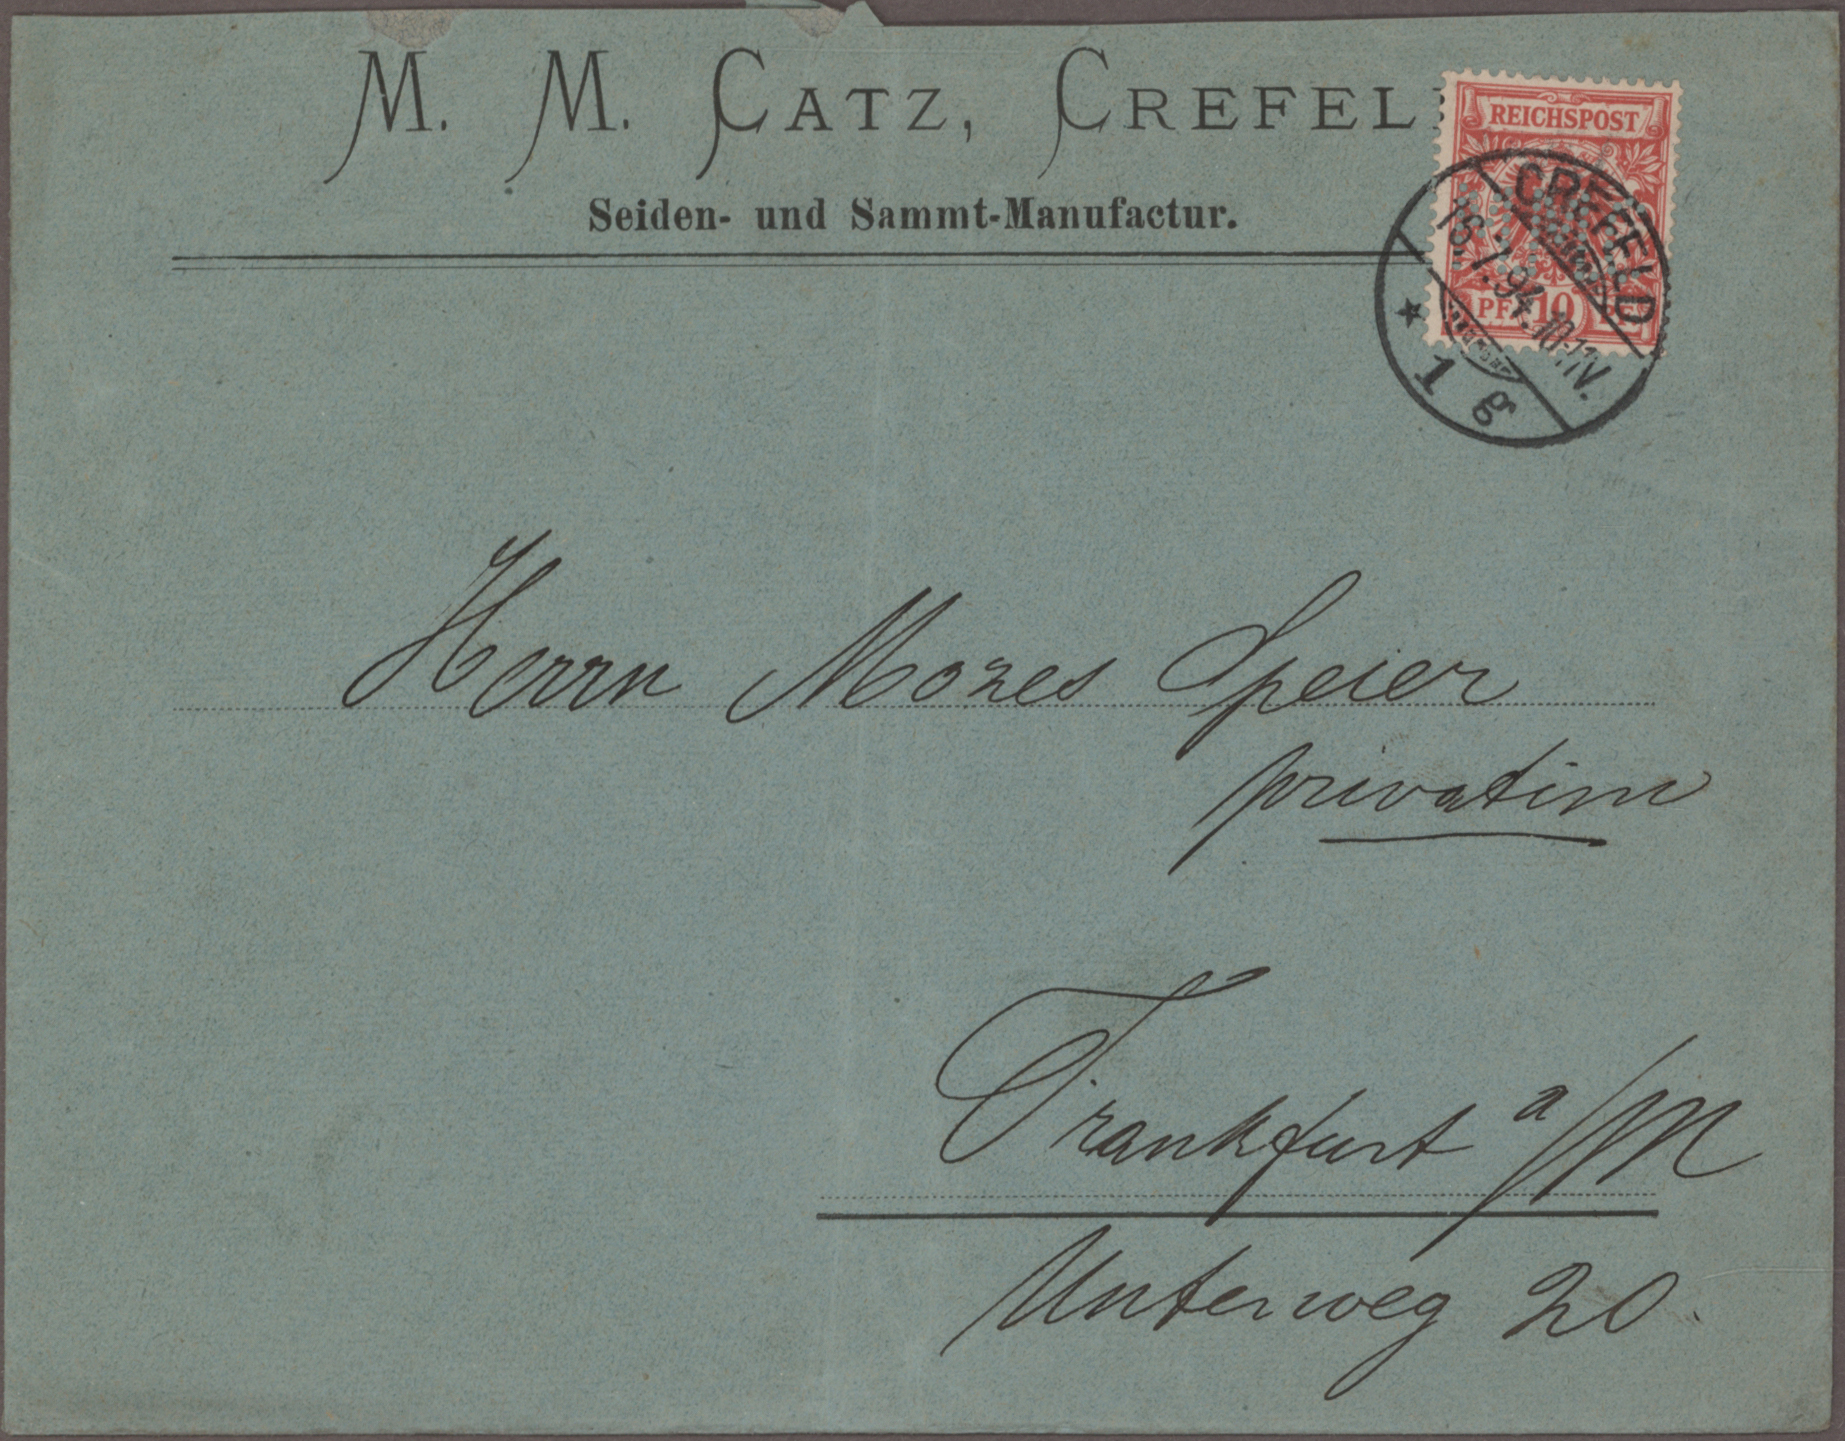 M. M. CATZ, CREFEL
Seiden- und Sammt-Manufactur.
REICHSPOST
PF 10
CREFELD
18.7.94. 10-11V.
* 1 g
Herrn Mozes Speier
privatim
Frankfurt a/M
Unterweg 20.